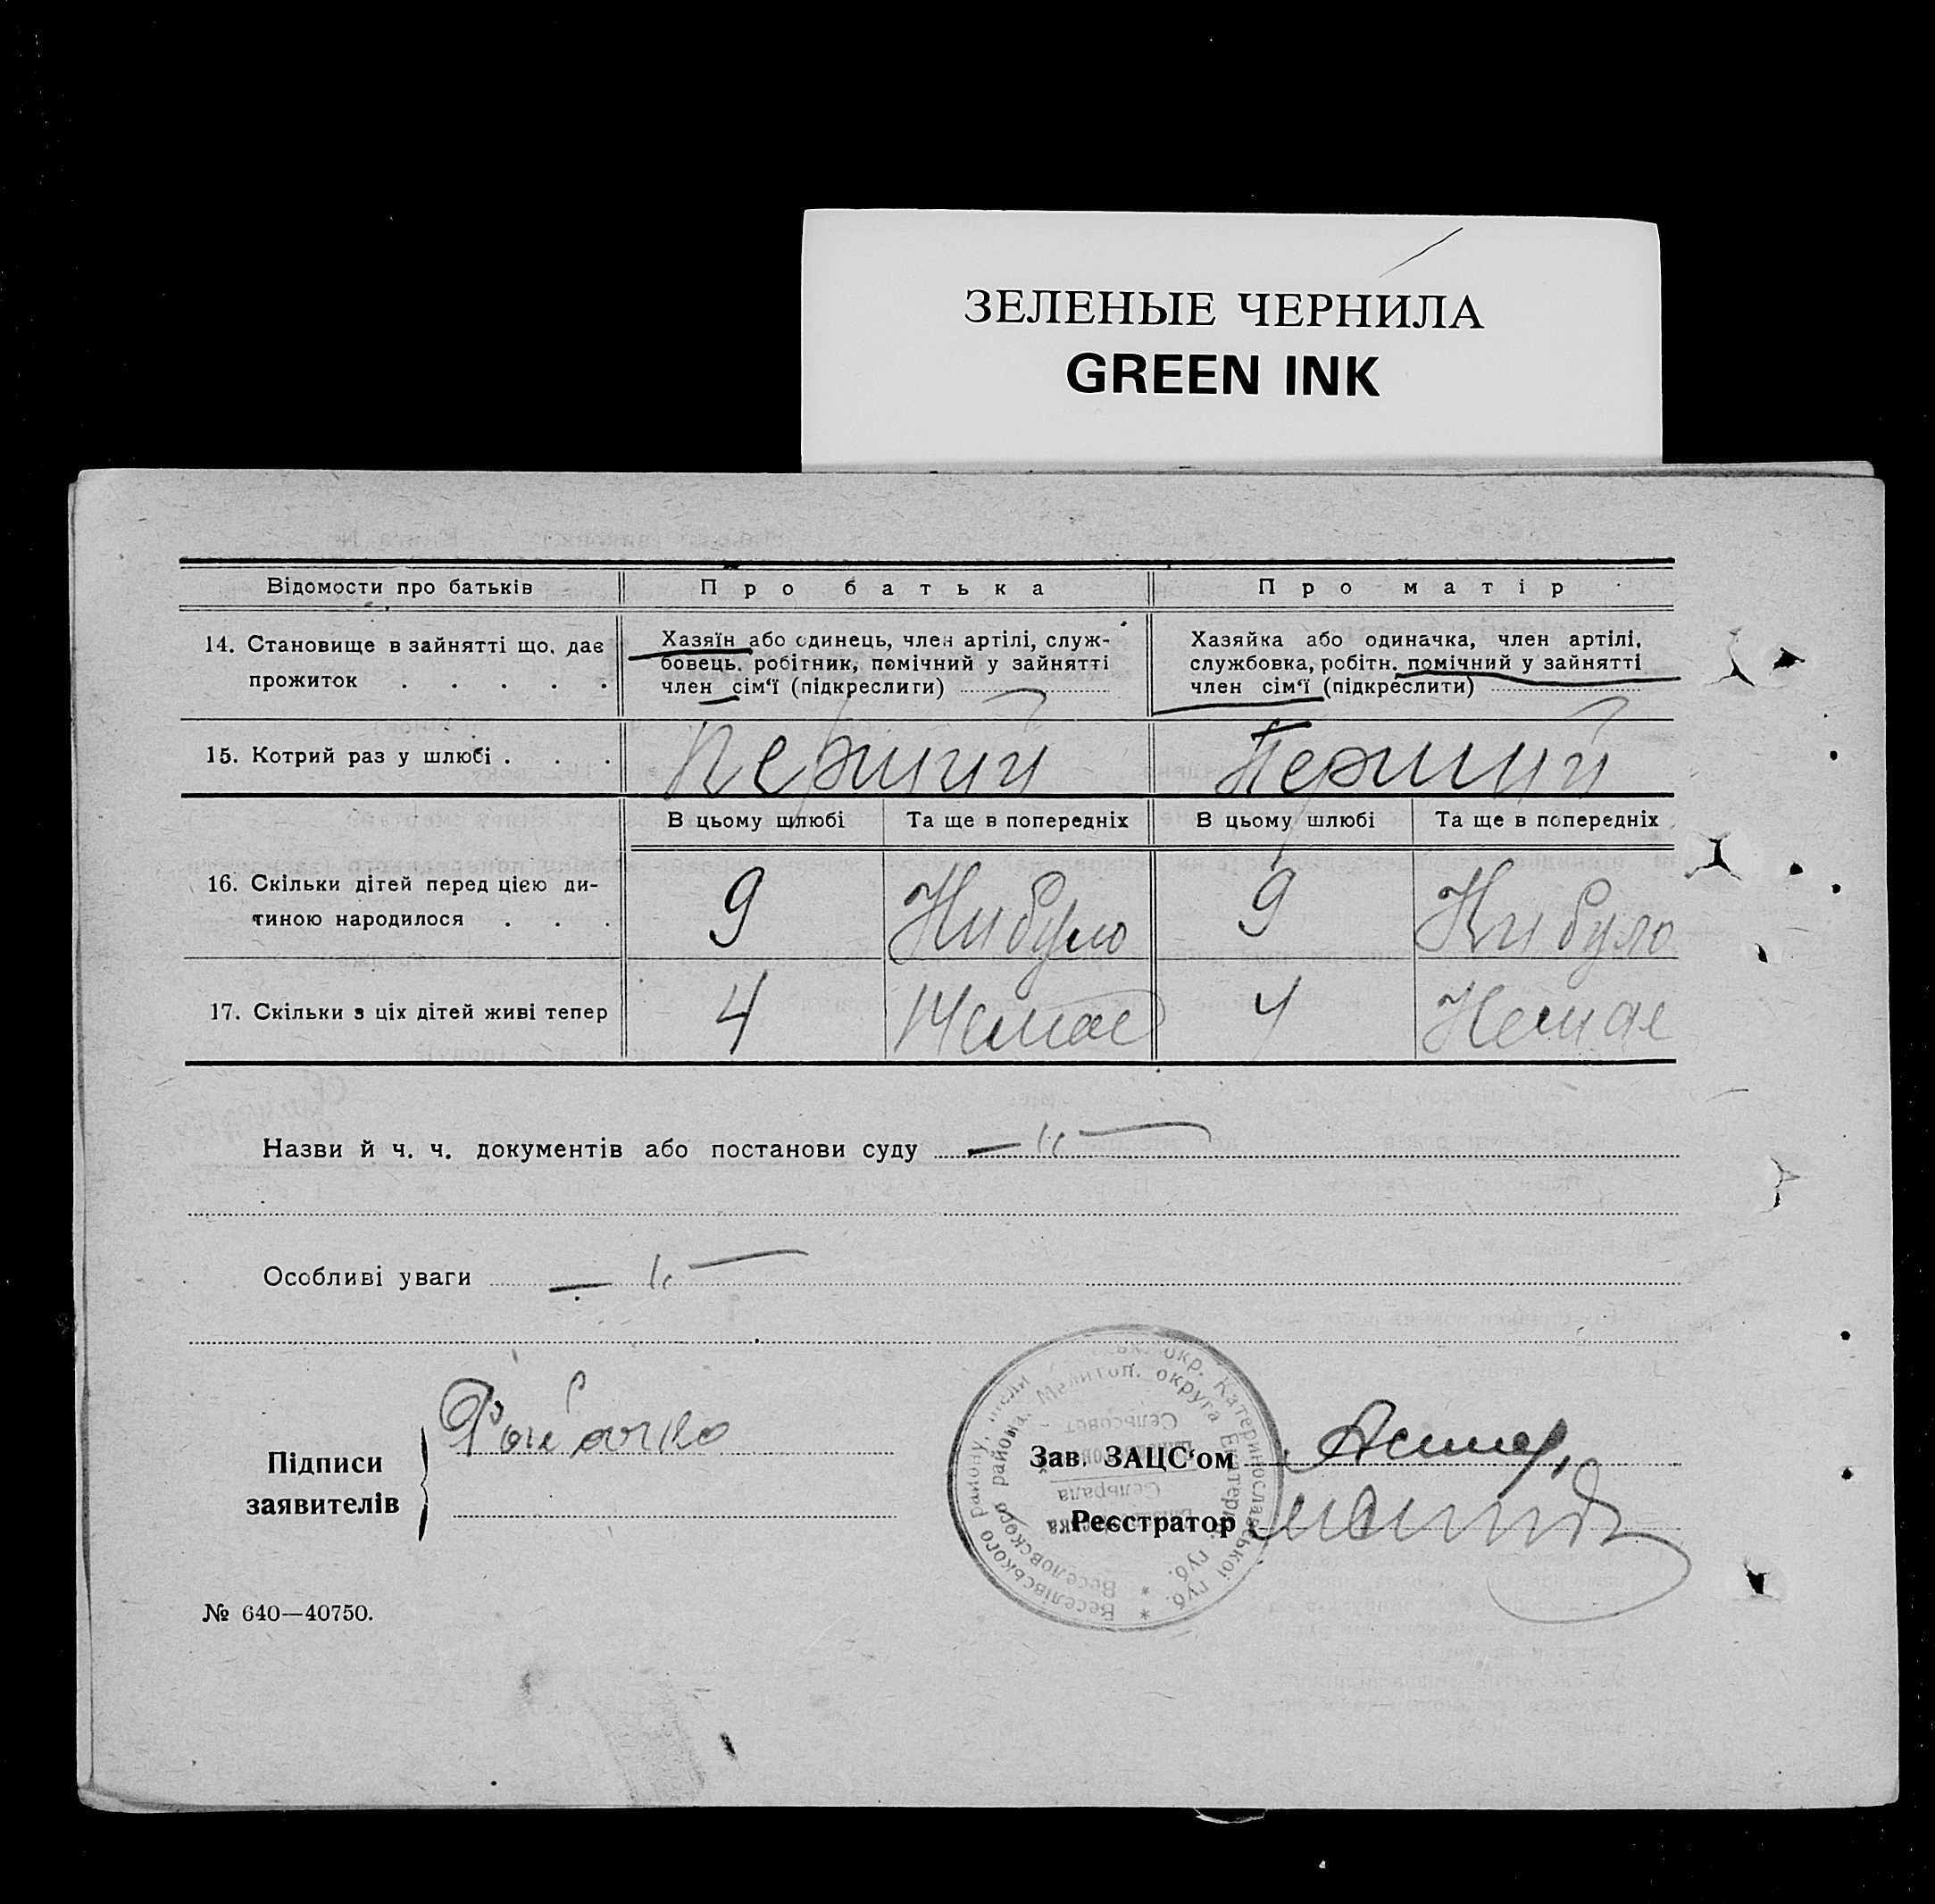 ЗЕЛЕНЫЕ ЧЕРНИЛА
GREEN INK
Відомости про батьків
Про батька
Про матір
14. Становище в зайнятті що, дає
прожиток . . . . .
Хазяїн або одинець, член артілі, служ-
бовець, робітник, помічний у зайнятті
член сім‘ї (підкреслити)
Хазяйка або одиначка, член артілі,
службовка, робітн. помічний у зайнятті
член сім‘ї (підкреслити)
15. Котрий раз у шлюбі . . .
Перший
Перший
В цьому шлюбі
Та ще в попередніх
В цьому шлюбі
Та ще в попередніх
16. Скільки дітей перед цією ди-
тиною народилося . . .
9
Ни було
9
Ни було
17. Скільки з ціх дітей живі тепер
4
Немає
4
Немає
Назви й ч. ч. документів або постанови суду — „ —
Особливі уваги — „ —
Підписи
заявителів
Зав. ЗАЦС‘ом
Реєстратор
Веселівського району, окр. Катеринославської губ.
Веселовского района, Мелитоп. округа Екатерин. губ.
Сельсовет
Сельрада
№ 640—40750.